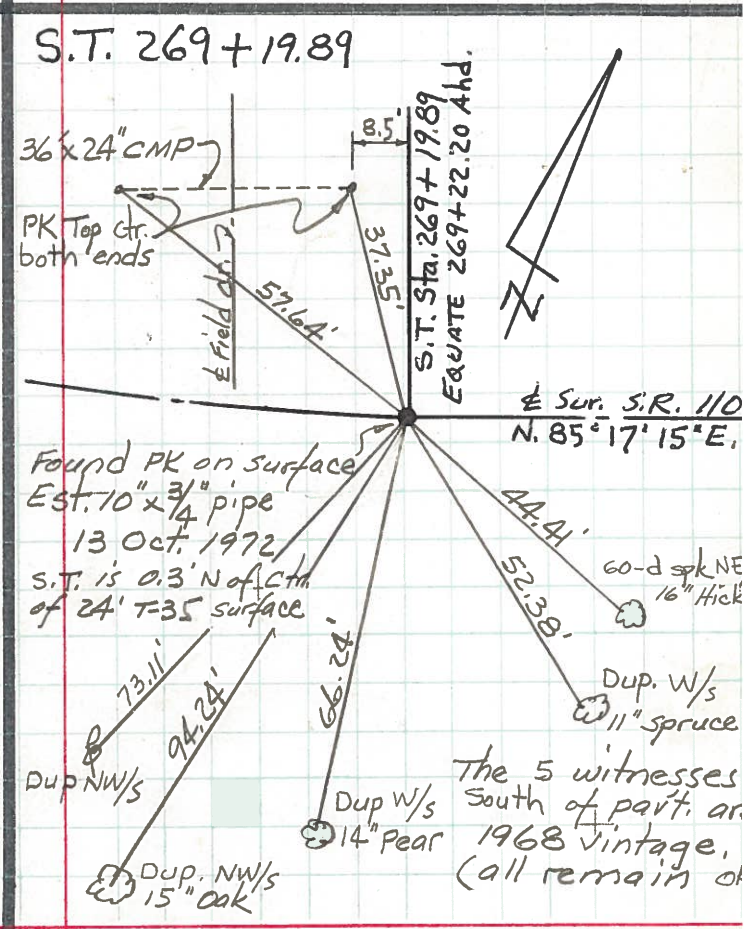 S.T. 269+19.89
8.5'
36'x24" CMP
PK Top Ctr.
both ends
₵ Field dr.
57.64'
37.35'
S.T. Sta. 269+19.89
EQUATE 269+22.20 Ahd.
N
₵ Sur. S.R. 110
N. 85° 17' 15" E.
Found PK on surface
Est. 10" x 3/4" pipe
13 Oct. 1972
S.T. is 0.3' N of Ctr.
of 24' T-35 surface
44.41'
60-d spk NE
16" Hick
52.38'
Dup. W/s
11" spruce
66.24'
Dup W/s
14" Pear
73.11'
Dup NW/s
94.24'
Dup. NW/s
15" Oak
The 5 witnesses
South of pav't. ar
1968 vintage.
(all remain ok